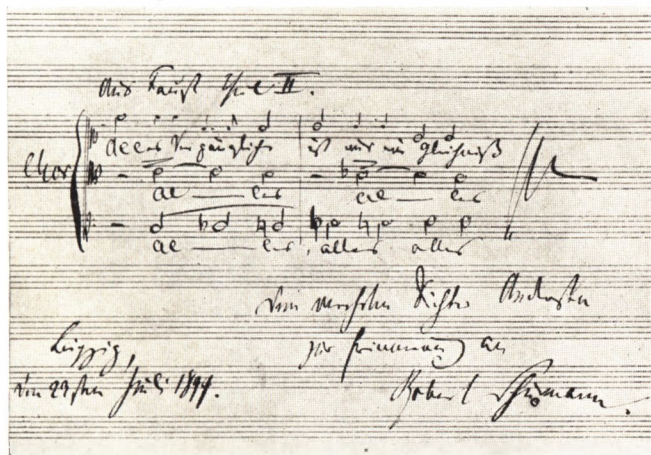 Aus Faust Theil II.
Chor
Alles Vergängliche ist nur ein Gleichniß
Al — les Al — les
Al — les, alles alles
Dem verehrten Dichter Andersen
zur Erinnerung an
Leipzig,
den 22sten Juli 1844.
Robert Schumann.